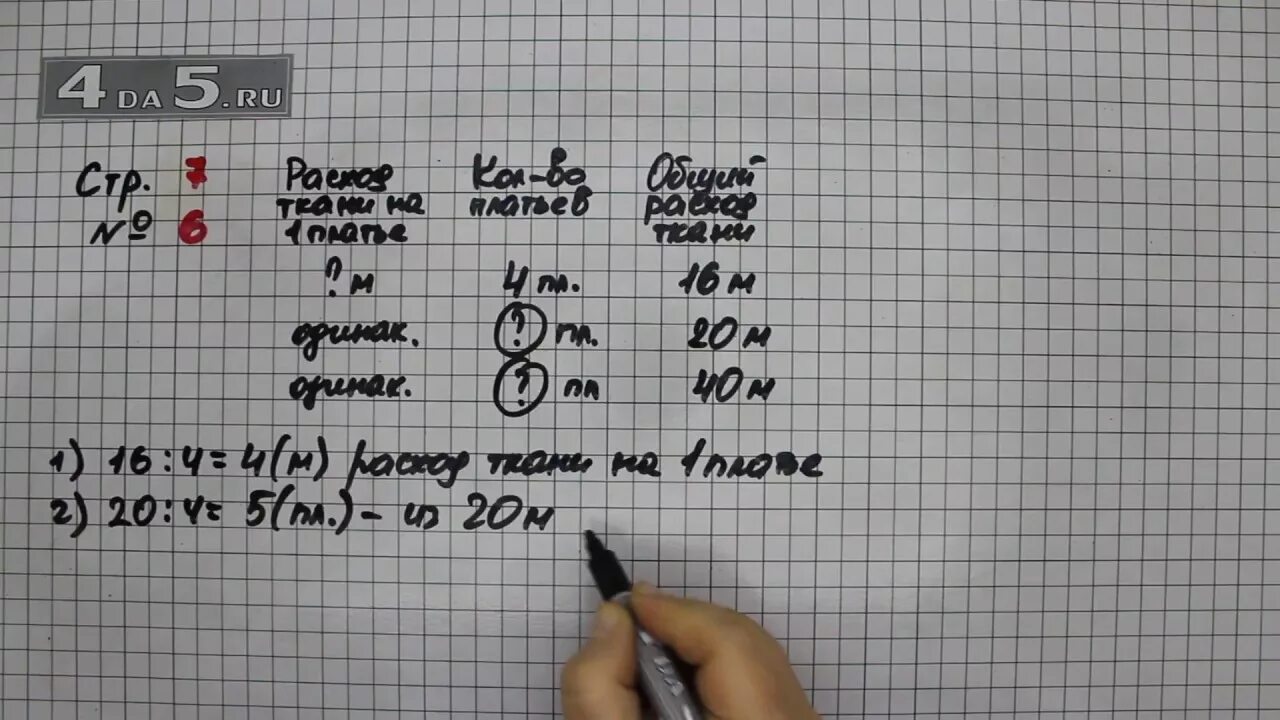 4 DA 5.RU
Стр. 7
№ 6
Расход ткани на 1 платье
Кол-во платьев
Общий расход ткани
? м 4 пл. 16 м
одинак. ? пл. 20 м
одинак. ? пл 40 м
1) 16 : 4 = 4 (м) расход ткани на 1 платье
2) 20 : 4 = 5 (пл.) - из 20 м